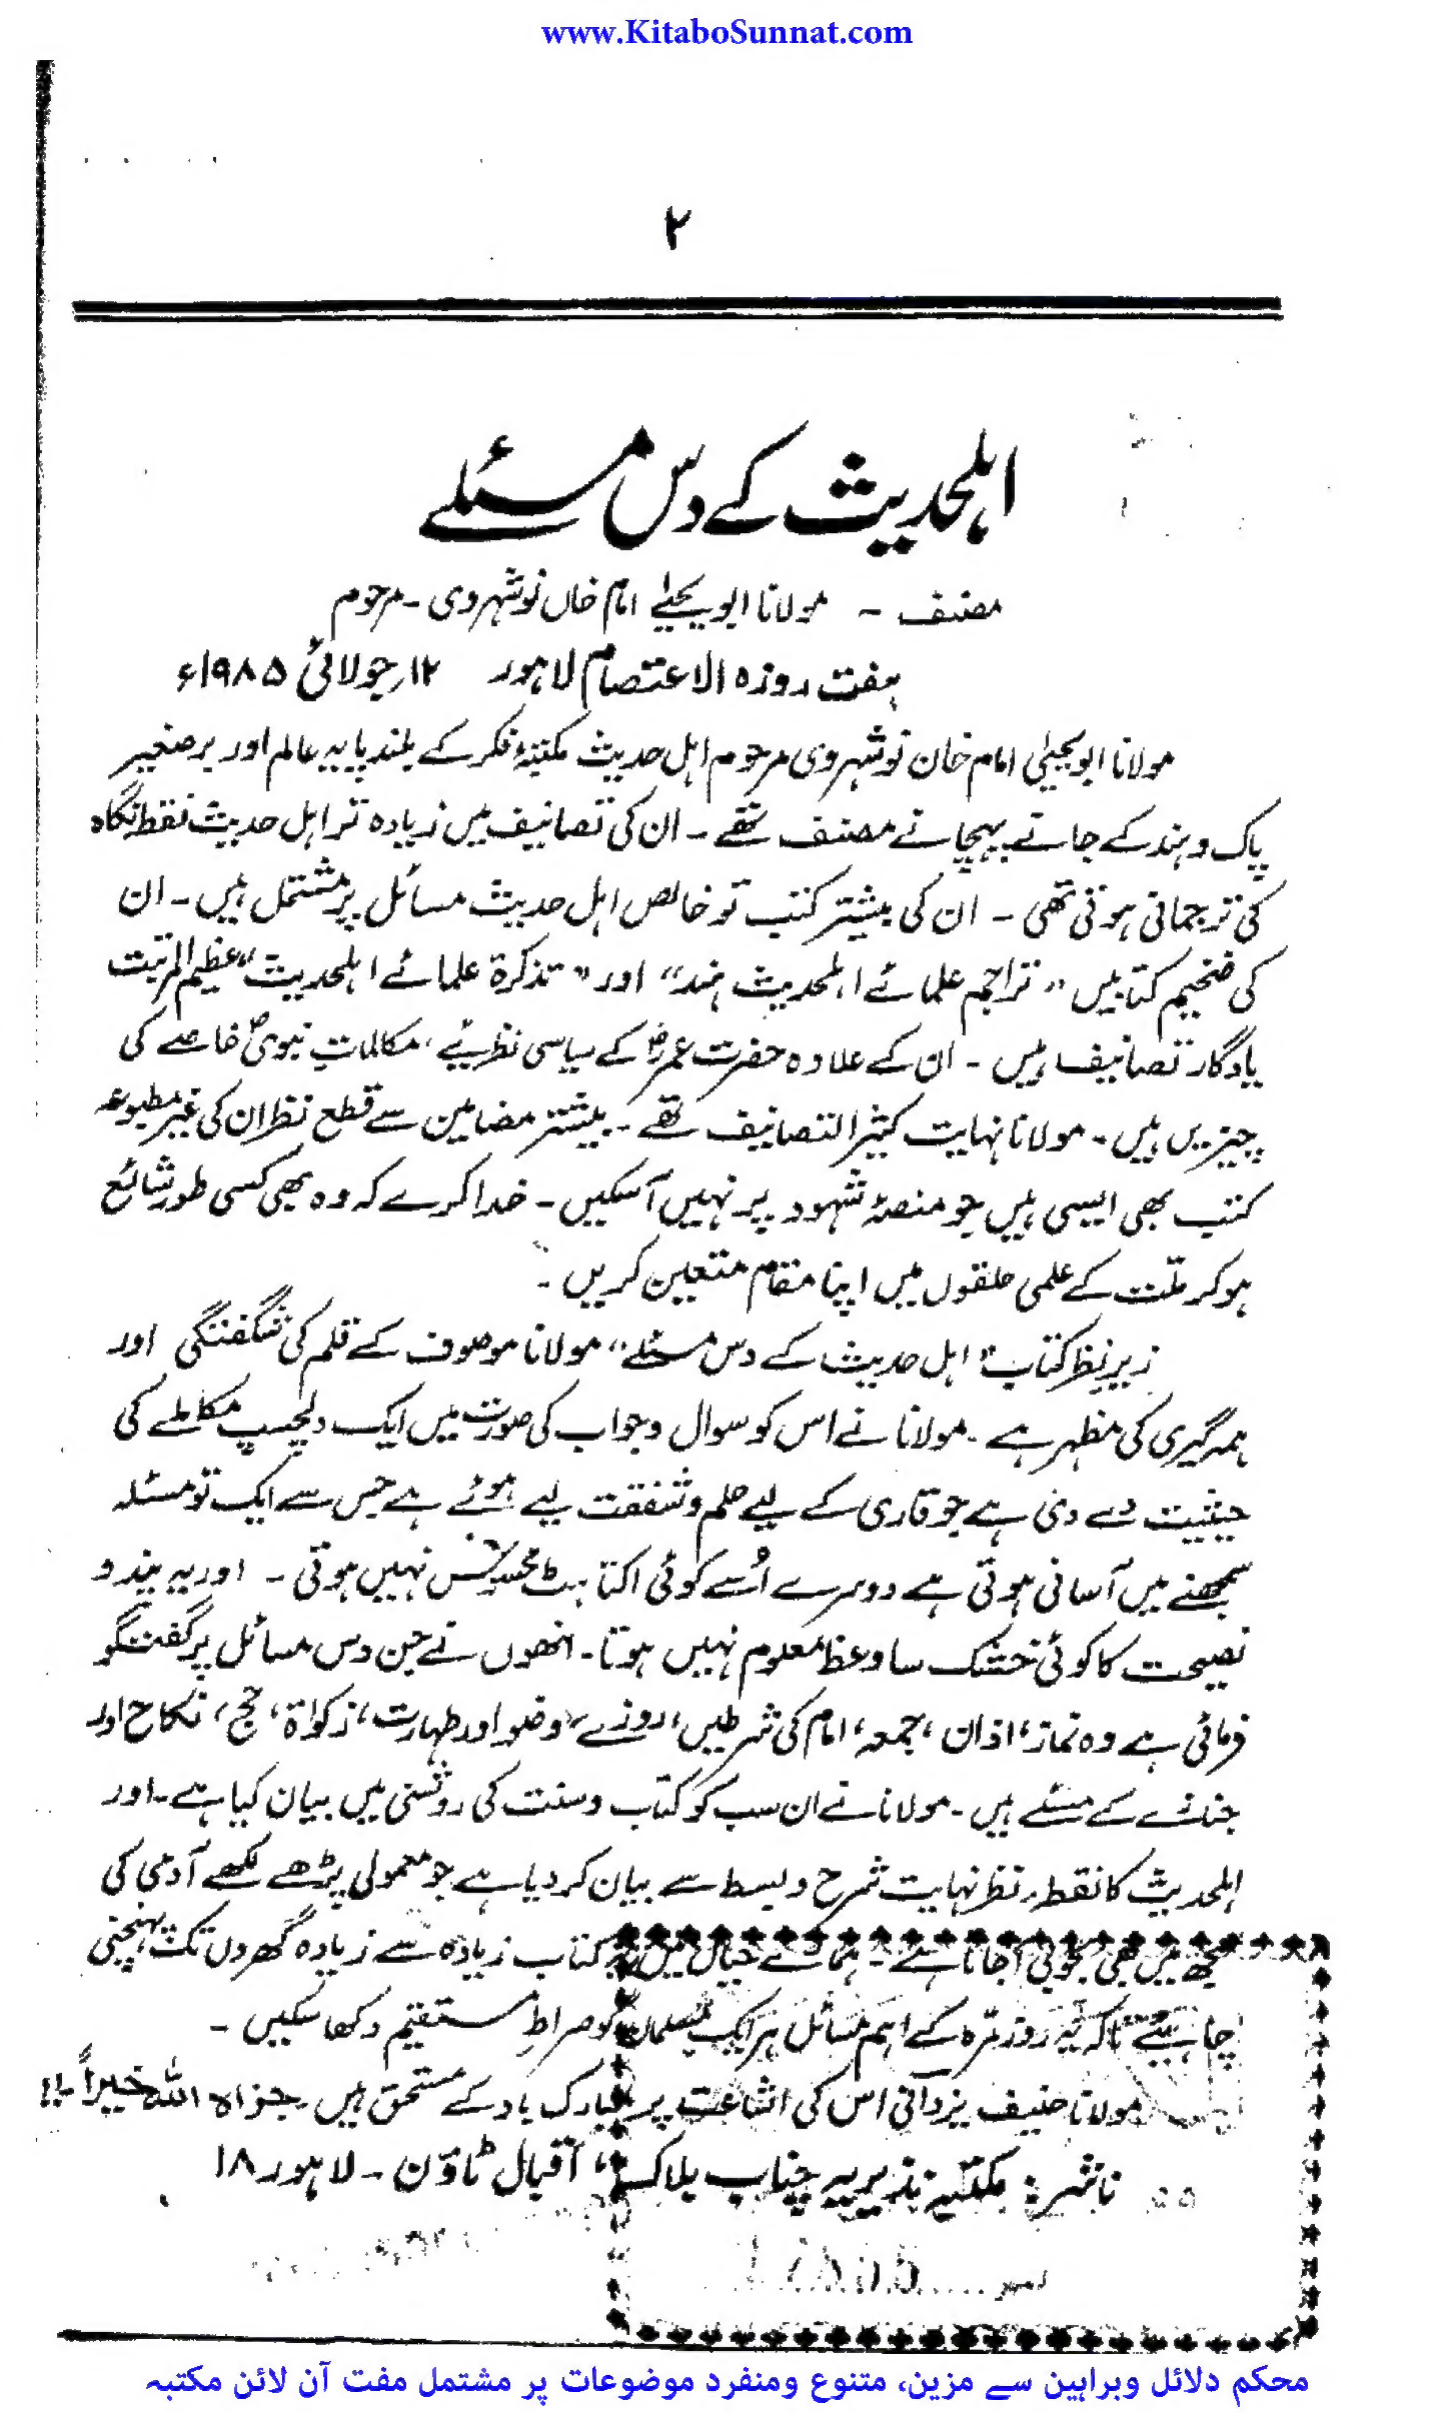 www.KitaboSunnat.com
۲
اہلحدیث کے دس مسئلے
مصنف - مولانا ابویحییٰ امام خاں نوشہروی - مرحوم
ہفت روزہ الاعتصام لاہور ۱۲؍جولائی ۱۹۸۵ء
مولانا ابویحییٰ امام خان نوشہروی مرحوم اہل حدیث مکتبۂ فکر کے بلند پایہ عالم اور برصغیر
پاک و ہند کے جانے پہچانے مصنف تھے - ان کی تصانیف میں زیادہ تر اہل حدیث نقطۂ نگاہ
کی ترجمانی ہوتی تھی - ان کی بیشتر کتب تو خالص اہل حدیث مسائل پر مشتمل ہیں - ان
کی ضخیم کتابیں "تراجم علمائے اہلحدیث ہند" اور "تذکرۃ علمائے اہلحدیث" عظیم المرتبت
یادگار تصانیف ہیں - ان کے علاوہ حضرت عمرؓ کے سیاسی نظریئے، مکالماتِ نبویؐ خاصے کی
چیزیں ہیں - مولانا نہایت کثیر التصانیف تھے - بیشتر مضامین سے قطع نظر ان کی غیر مطبوعہ
کتب بھی ایسی ہیں جو منصۂ شہود پر نہیں آ سکیں - خدا کرے کہ وہ بھی کسی طور شائع
ہو کر ملّت کے علمی حلقوں میں اپنا مقام متعین کریں -
زیرِ نظر کتاب "اہل حدیث کے دس مسئلے" مولانا موصوف کے قلم کی شگفتگی اور
ہمہ گیری کی مظہر ہے - مولانا نے اس کو سوال و جواب کی صورت میں ایک دلچسپ مکالمے کی
حیثیت دے دی ہے جو قاری کے لیے حلم و شفقت لیے ہوئے ہے جس سے ایک تو مسئلہ
سمجھنے میں آسانی ہوتی ہے دوسرے اُسے کوئی اکتاہٹ محسوس نہیں ہوتی - اور یہ پند و
نصیحت کا کوئی خشک سا وعظ معلوم نہیں ہوتا - انھوں نے جن دس مسائل پر گفتگو
فرمائی ہے وہ نماز، اذان، جمعہ، امام کی شرطیں، روزے، وضو اور طہارت، زکواۃ، حج، نکاح اور
جنازے کے مسئلے ہیں - مولانا نے ان سب کو کتاب و سنت کی روشنی میں بیان کیا ہے - اور
اہلحدیث کا نقطہ نظر نہایت شرح و بسط سے بیان کر دیا ہے جو معمولی پڑھے لکھے آدمی کی
سمجھ میں بھی بخوبی آ جاتا ہے - ہمارے خیال میں یہ کتاب زیادہ سے زیادہ گھروں تک پہنچنی
چاہیئے تاکہ یہ روزمرّہ کے اہم مسائل ہر ایک مسلمان کو صراطِ مستقیم دکھا سکیں -
مولانا حنیف یزدانی اس کی اشاعت پر مبارک باد کے مستحق ہیں - جزاہ اللہ خیراً -!!
ناشر: مکتبہ نذیریہ چناب بلاک، اقبال ٹاؤن - لاہور ۱۸
محکم دلائل وبراہین سے مزین، متنوع ومنفرد موضوعات پر مشتمل مفت آن لائن مکتبہ